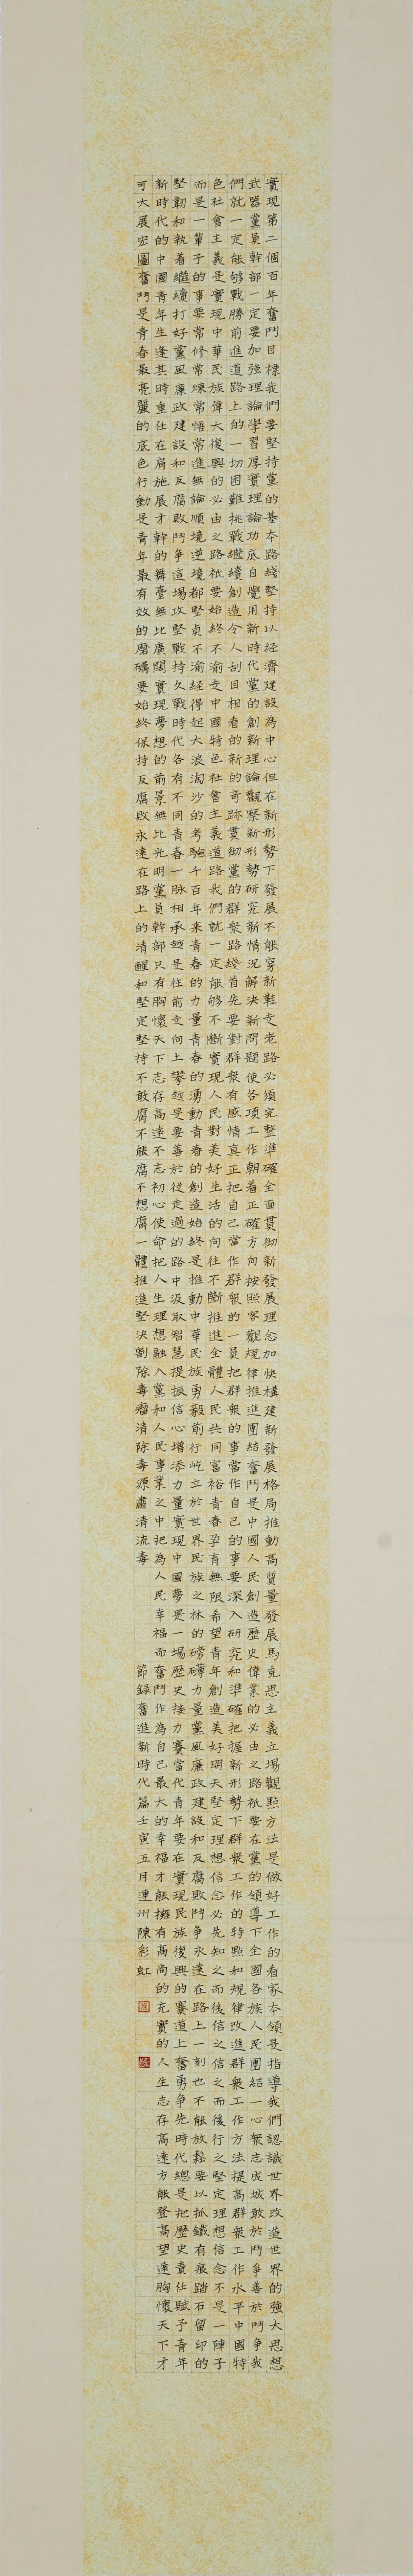 實現第二個百年奮鬥目標我們要堅持黨的基本路綫堅持以經濟建設為中心但在新形勢下發展不能穿新鞋走老路必須完整準確全面貫彻新發展理念加快構建新發展格局推動高質量發展馬克思主義立場觀點方法是做好工作的看家本領是指導我們認識世界改造世界的強大思想
武器黨員幹部一定要加強理論學習厚實理論功底自覺用新時代黨的創新理論觀察新形勢研究新情況解決新問題使各項工作朝着正確方向按照客觀規律推進團結奮鬥是中國人民創造歷史偉業的必由之路祇要在黨的領導下全國各族人民團結一心衆志成城敢於鬥争善於鬥争我
們就一定能够戰勝前進道路上的一切困難挑戰繼續創造令人刮目相看的新的奇跡貫彻黨的群衆路綫首先要對群衆有感情真正把自己當作群衆的一員把群衆的事當作自己的事要深入研究和準確把握新形勢下群衆工作的特點和規律改進群衆工作方法提高群衆工作水平中國特
色社會主義是實現中華民族偉大復興的必由之路祇要始終不渝走中國特色社會主義道路我們就一定能够不斷實現人民對美好生活的向往不斷推進全體人民共同富裕青春孕育無限希望青年創造美好明天堅定理想信念必先知之而後信之信之而後行之堅定理想信念不是一陣子
而是一輩子的事要常修常煉常悟常進無論順境逆境都堅貞不渝經得起大浪淘沙的考驗千百年来青春的力量青春的湧動青春的創造始終是推動中華民族勇毅前行屹立於世界民族之林的磅礴力量黨風廉政建設和反腐敗鬥争永遠在路上一刻也不能放鬆要以抓鐵有痕踏石留印的
堅韌和執着繼續打好黨風廉政建設和反腐敗鬥争這場攻堅戰持久戰時代各有不同青春一脉相承越是往前走向上攀越是要善於從走過的路中汲取智慧提振信心增添力量實現中國夢是一場歷史接力賽當代青年要在實現民族復興的賽道上奮勇争先時代總是把歷史責任賦予青年
新時代的中國青年生逢其時重任在肩施展才幹的舞臺無比廣闊實現夢想的前景無比光明黨員幹部只有胸懷天下志存高遠不忘初心使命把人生理想融入黨和人民事業之中把為人民幸福而奮鬥作為自己最大的幸福才能擁有高尚的充實的人生志存高遠方能登高望遠胸懷天下才
可大展宏圖奮鬥是青春最亮麗的底色行動是青年最有效的磨礪要始終保持反腐敗永遠在路上的清醒和堅定堅持不敢腐不能腐不想腐一體推進堅決剷除毒瘤清除毒源肅清流毒
節録奮進新時代篇壬寅五月連州陳彩虹